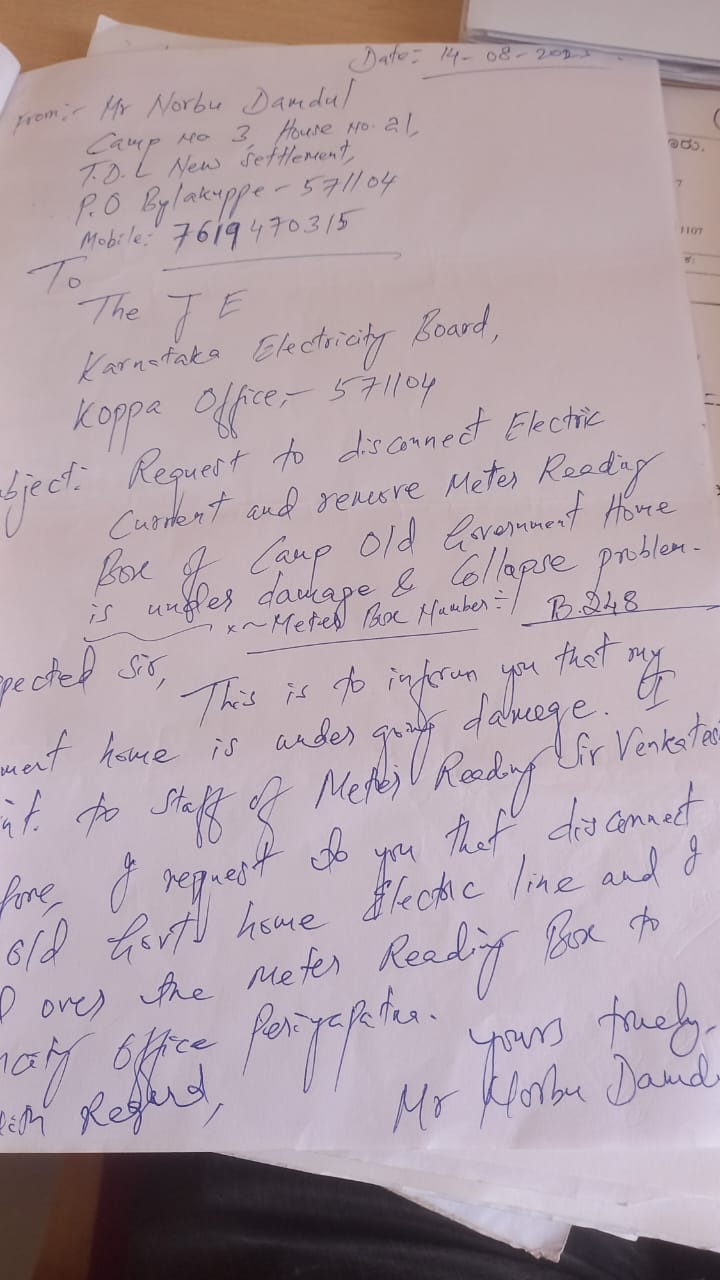 Date:- 14-08-202
From:- Mr Norbu Damdul
Camp No 3, House No. 21,
T.D.L New Settlement,
P.O Bylakuppe - 571104
Mobile: 7619470315
To
The J E
Karnataka Electricity Board,
Koppa Office,- 571104
bject: Request to disconnect Electric
Current and remove Meter Reading
Box of Camp Old Government Home
is under damage & Collapse problem.
x~ Meter Box Number:- B.248
pected Sir,
This is to inform you that my
ment home is under going damage. I
int. to Staff of Meter Reading Sir Venkates
fore, I request to you that disconnect
old Govt home Electric line and I
over the Meter Reading Box to
Office Periyapatna.
yours truely.
Regard,
Mr Norbu Damd